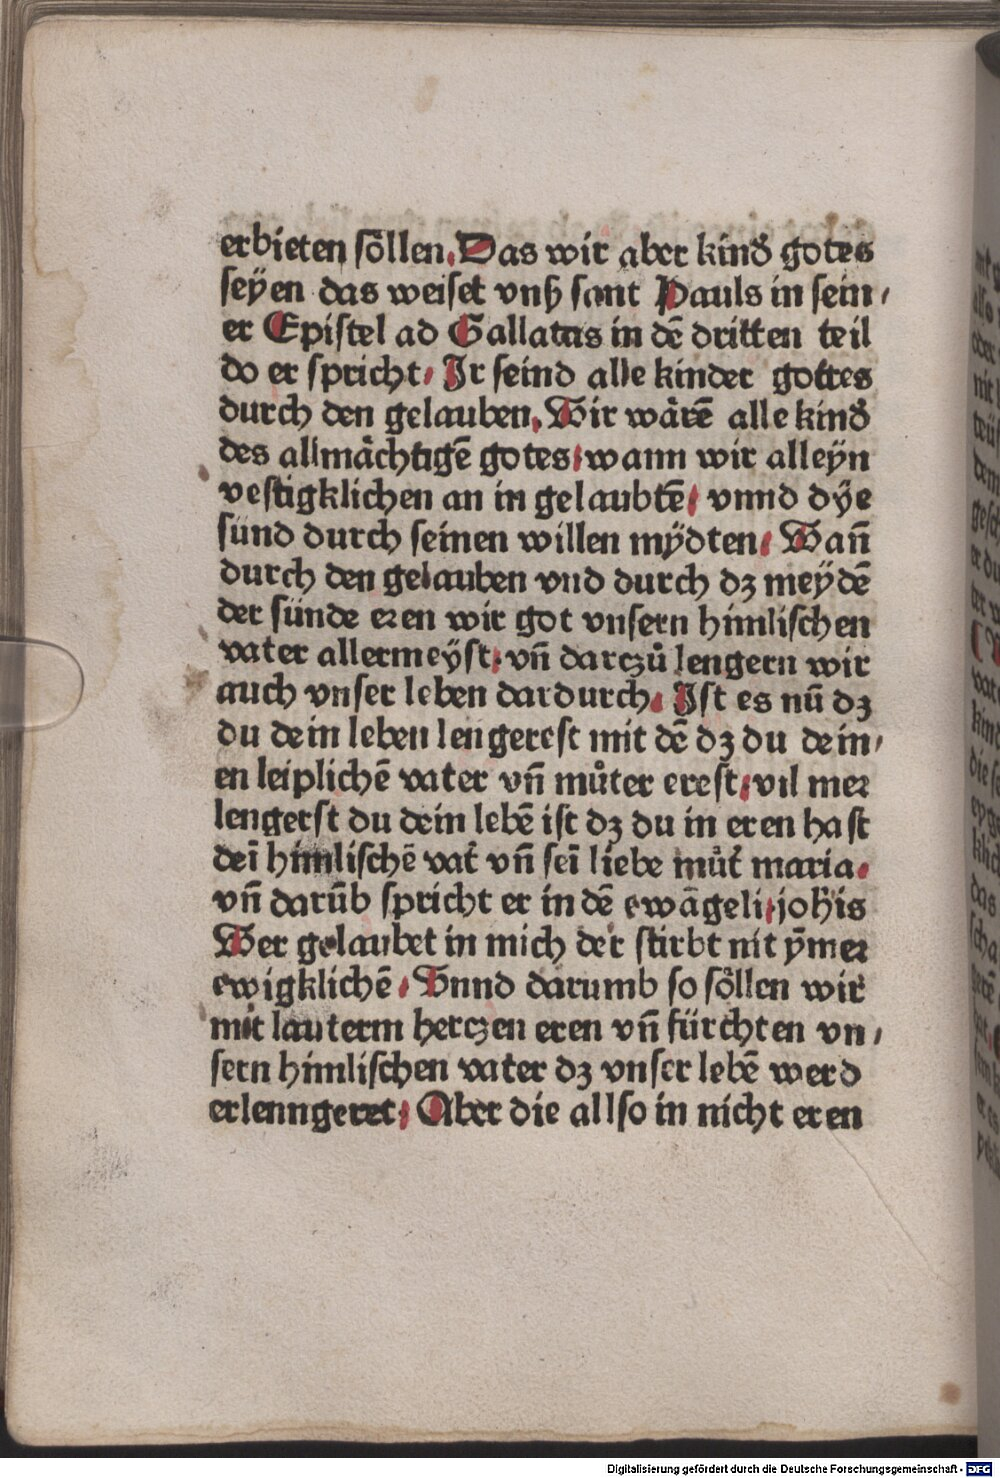 erbieten söllen. Das wir aber kind̾ gotes
seyen das weiset vnß sant Pauls in sein⸗
er Epistel ad Gallatas in dē dritten teil
do er spricht. Ir seind alle kinder gottes
durch den gelauben. Wir wärē alle kind̾
des allmächtigē gotes. wann wir alleyn
vestigklichen an in gelaubtē. vnnd dÿe
sünd durch seinen willen mÿdten. Wañ
durch den gelauben vnd durch dꝫ meÿdē
der sünde eren wir got vnsern himlischen
vater allermeÿst. vñ darczů lengern wir
auch vnser leben dardurch. Ist es nū dꝫ
du dein leben lengerest mit dē dꝫ du dein⸗
en leiplichē vater vñ můter erest. vil mer
lengerst du dein lebē ist dꝫ du in eren hast
deī himlischē vat̾ vñ seī liebe můt̾ maria.
vñ darūb spricht er in dē ewāgeli. joh̄is
Wer gelaubet in mich der stirbt nit ÿmer
ewigklichē. Vnnd darumb so söllen wir
mit lauterm herczen eren vñ fürchten vn⸗
sern himlischen vater dꝫ vnser lebē werd
erlenngeret. Aber die allso in nicht eren
Digitalisierung gefördert durch die Deutsche Forschungsgemeinschaft - DFG